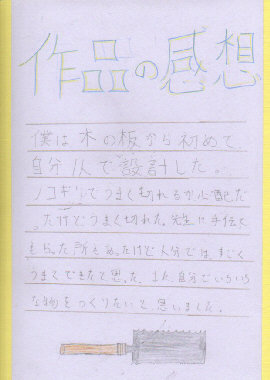 作品の感想
僕は木の板から初めて、
自分1人で設計した。
ノコギリでうまく切れるか心配だ
ったけどうまく切れた。先生に手伝って
もらった所もあったけど自分では、すごく
うまくできたと思った。また、自分でいろいろ
な物をつくりたいと思いました。